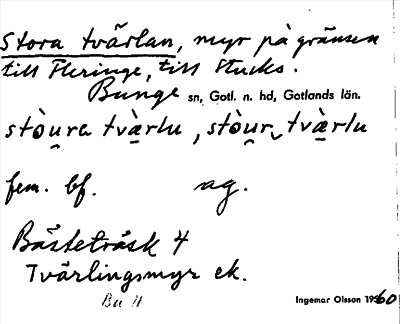 Stora tvärlan, myr på gränsen
till Fleringe, till Stucks.
Bunge sn, Gotl. n. hd, Gotlands län.
stòu̯ra tvæ̀rlu, stòu̯r tvæ̀rlu
fem. bf. ag.
Bästeträsk 4
Tvärlingsmyr ek.
Bu 11
Ingemar Olsson 1960